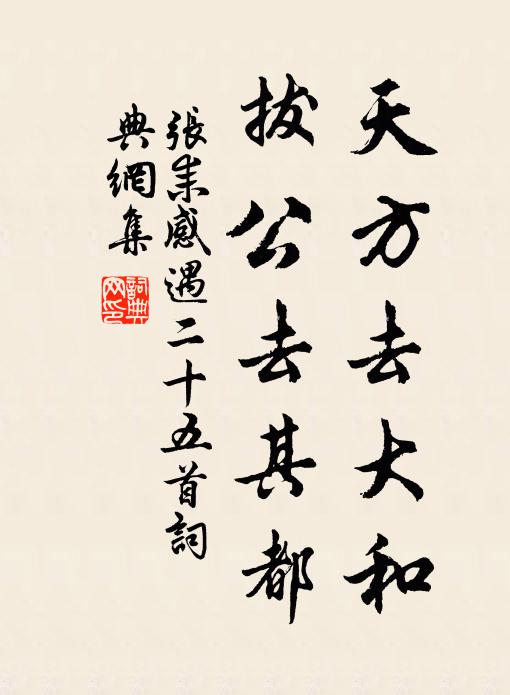 天方去大和
拔公去其都
張耒感遇二十五首詞
典網集
詞典
网印